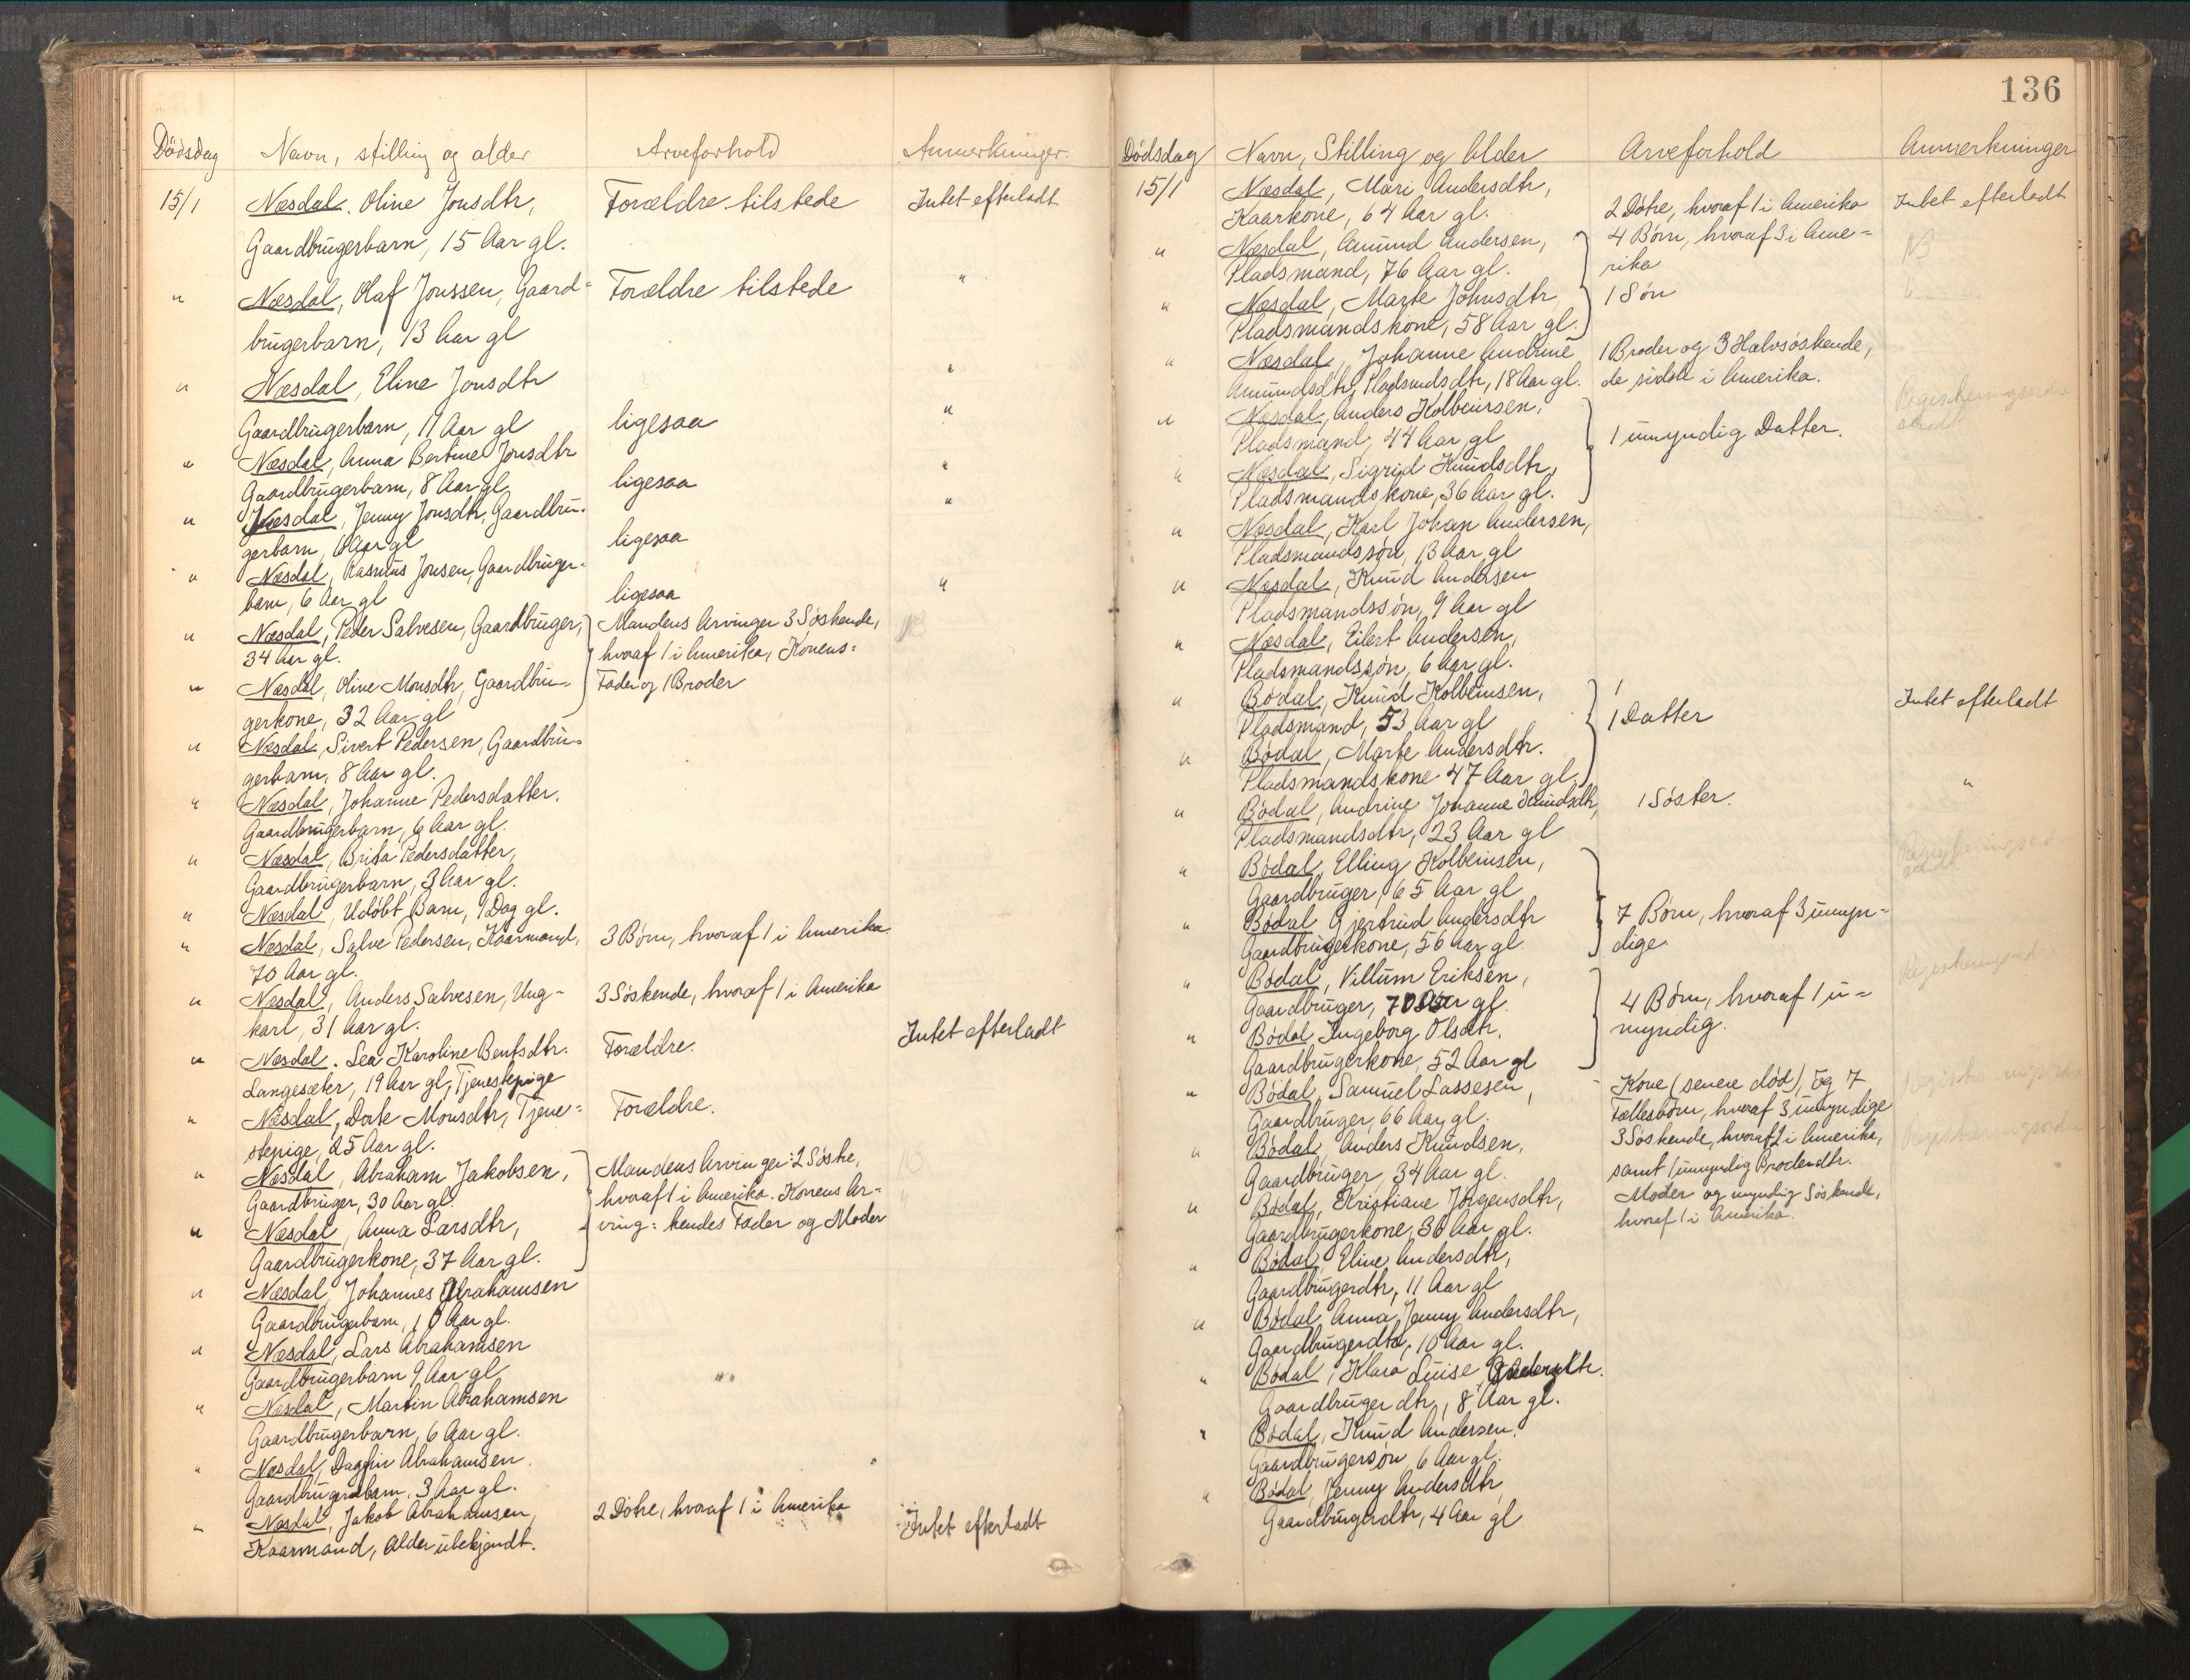 136
Dödsdag Navn, stilling og alder Arveforhold Anmerkninger.
15/1 Næsdal. Oline Jonsdtr, Forældre tilstede Intet efterladt
Gaardbrugerbarn, 15 Aar gl.
" Næsdal, Olaf Jonssen, Gaard= Forældre tilstede "
brugerbarn, 13 Aar gl
" Næsdal, Eline Jonsdtr "
Gaardbrugerbarn, 11 Aar gl ligesaa "
" Næsdal, Anna Bertine Jonsdtr
Gaardbrugerbarn, 8 Aar gl ligesaa "
" Næsdal, Jenny Jonsdtr, Gaardbru- "
gerbarn, 6 Aar gl ligesaa
" Næsdal, Rasmus Jonsen, Gaardbruger-
barn, 6 Aar gl ligesaa "
" Næsdal, Peder Salvesen, Gaardbruger, Mandens Arvinger 3 Søskende, NB
34 Aar gl. hvoraf 1 i Amerika, Konens:
" Næsdal, Oline Monsdtr, Gaardbru- Fader og 1 Broder
gerkone, 32 Aar gl
" Næsdal, Sivert Pedersen, Gaardbru-
gerbarn, 8 Aar gl.
" Næsdal, Johanne Pedersdatter,
Gaardbrugerbarn, 6 Aar gl.
" Næsdal, Brita Pedersdatter,
Gaardbrugerbarn, 3 Aar gl.
" Næsdal, Udöbt Barn, 1 Dag gl.
" Næsdal, Salve Pedersen, Kaarmand, 3 Börn, hvoraf 1 i Amerika
70 Aar gl.
" Næsdal, Anders Salvesen, Ung- 3 Söskende, hvoraf 1 i Amerika
karl, 31 Aar gl.
" Næsdal. Lea Karoline Bentsdtr. Forældre. Intet efterladt
Langesæter, 19 Aar gl, Tjenestepige
" Næsdal, Dorte Monsdtr, Tjene= Forældre.
stepige, 25 Aar gl.
" Næsdal, Abraham Jakobsen, Mandens Arvinger: 2 Søstre,
Gaardbruger, 30 Aar gl. hvoraf 1 i Amerika. Konens Ar=
" Næsdal, Anna Larsdtr, ving: hendes Fader og Moder
Gaardbrugerkone, 37 Aar gl.
" Næsdal, Johannes Abrahamsen
Gaardbrugerbarn, 10 Aar gl.
" Næsdal, Lars Abrahamsen
Gaardbrugerbarn 9 Aar gl "
" Næsdal, Martin Abrahamsen
Gaardbrugerbarn, 6 Aar gl.
" Næsdal, Dagfin Abrahamsen.
Gaardbrugerbarn, 3 Aar gl.
" Næsdal, Jakob Abrahamsen, 2 Dötre, hvoraf 1 i Amerika Intet efterladt
Kaarmand, Alder ubekjendt.
Dödsdag Navn, Stilling og Alder Arveforhold Anmerkninger
15/1 Næsdal, Mari Andersdtr, 2 Dötre, hvoraf 1 i Amerika Intet efterladt
Kaarkone, 64 Aar gl.
" Næsdal, Amund Andersen, 4 Börn, hvoraf 3 i Ame= NB
Pladsmand, 76 Aar gl. rika
" Næsdal, Marte Johnsdtr 1 Sön "
Pladsmandskone, 58 Aar gl.
" Næsdal, Johanne Andrine 1 Broder og 3 Halvsöskende,
Amundsdtr, Pladsmdsdtr, 18 Aar gl. de sidste i Amerika.
" Næsdal, Anders Kolbeinsen,
Pladsmand, 44 Aar gl 1 umyndig Datter.
" Næsdal, Sigrid Knudsdtr,
Pladsmandskone, 36 Aar gl.
" Næsdal, Karl Johan Andersen,
Pladsmandssön, 13 Aar gl
" Næsdal, Knud Andersen
Pladsmandssön, 9 Aar gl
" Næsdal, Eilert Andersen,
Pladsmandssön, 6 Aar gl.
" Bödal, Knud Kolbeinsen, 1 Intet efterladt
Pladsmand, 53 Aar gl 1 Datter
" Bödal, Marte Andersdtr.
Pladsmandskone 47 Aar gl.
" Bödal, Andrine Johanne Knudsdtr, 1 Söster. "
Pladsmandsdtr, 23 Aar gl
" Bödal, Elling Kolbeinsen,
Gaardbruger, 65 Aar gl
" Bödal Gjertrud Andersdtr 7 Börn, hvoraf 3 umyn=
Gaardbrugerkone, 56 Aar gl. dige.
" Bödal, Villum Eriksen,
Gaardbruger, 70 Aar gl. 4 Börn, hvoraf 1 u=
" Bödal Ingeborg Olsdtr. myndig.
Gaardbrugerkone, 52 Aar gl
" Bödal, Samuel Lassesen, Kone (senere död), og 7
Gaardbruger, 66 Aar gl. Fællesbörn, hvoraf 3 umyndige
" Bödal, Anders Knudsen, 3 Söskende, hvoraf 2 i Amerika,
Gaardbruger, 34 Aar gl. samt 1 umyndig Broderdtr.
" Bödal, Kristiane Jörgensdtr, Moder og myndig Söskende,
Gaardbrugerkone, 36 Aar gl. hvoraf 1 i Amerika.
" Bödal, Eline Andersdtr,
Gaardbrugerdtr, 11 Aar gl
" Bödal Anna Jenny Andersdtr,
Gaardbrugerdtr, 10 Aar gl.
" Bödal, Klara Luise Andersdtr.
Gaardbrugerdtr, 8 Aar gl.
" Bödal, Knud Andersen.
Gaardbrugersön, 6 Aar gl.
" Bödal, Jenny Andersdtr
Gaardbrugerdtr, 4 Aar gl